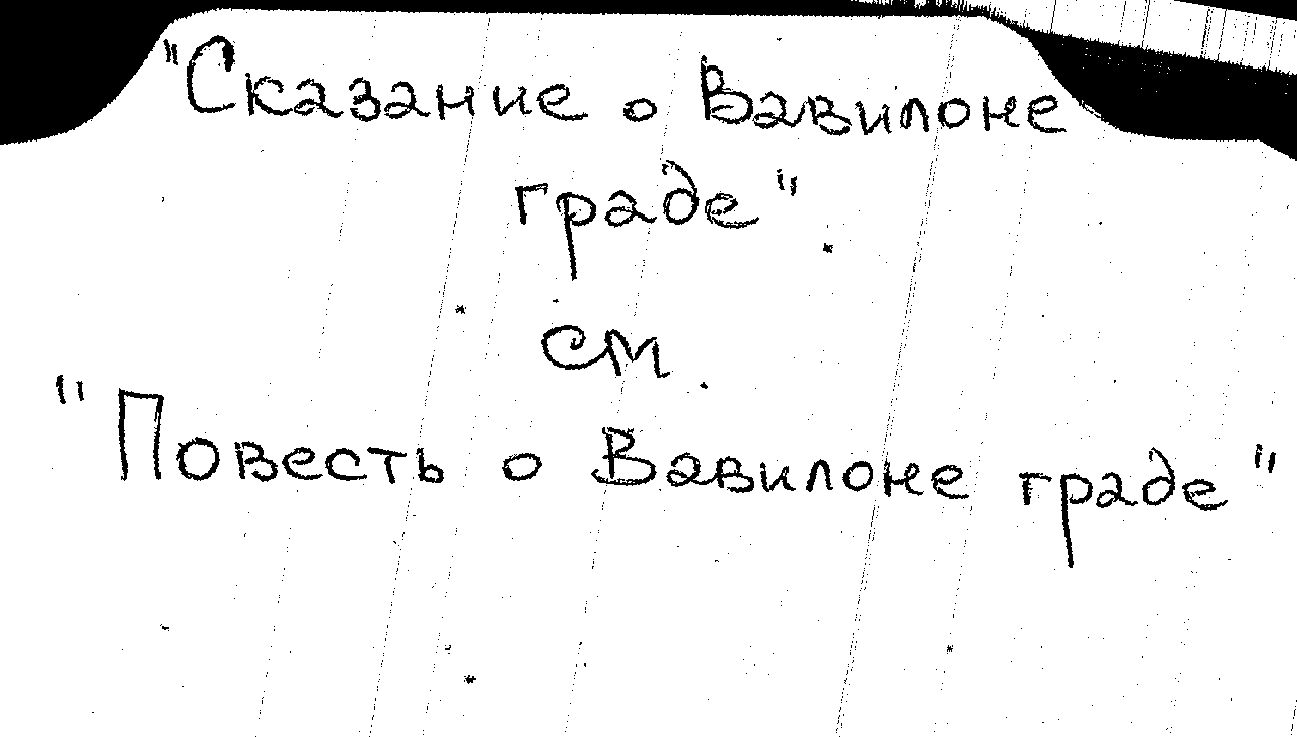 "Сказание о Вавилоне
граде".
см.
"Повесть о Вавилоне граде"